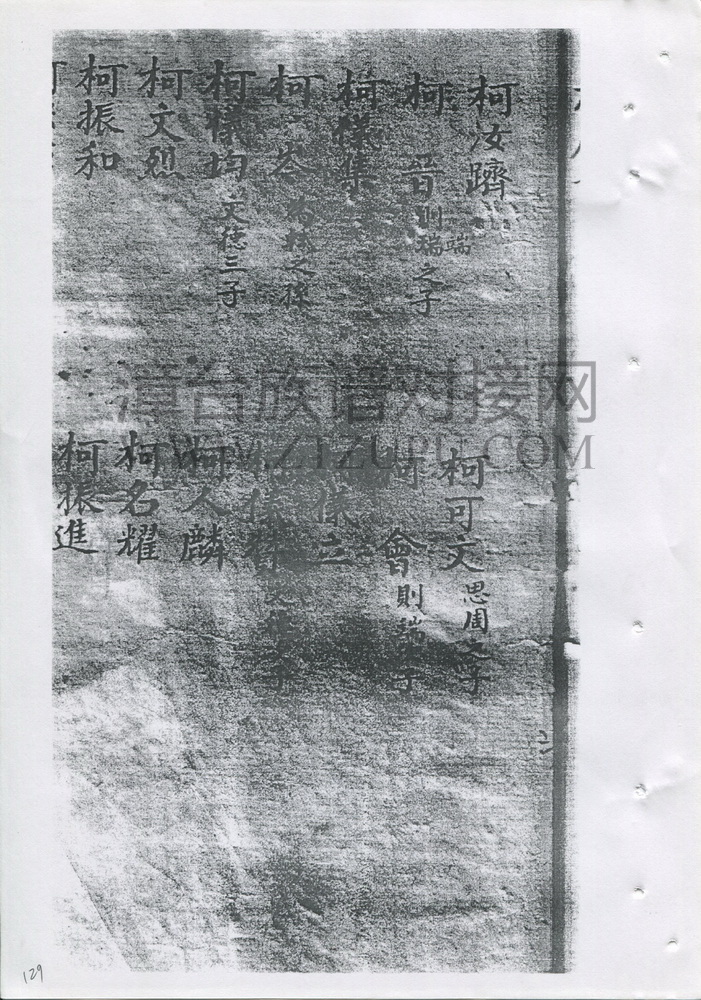 柯汝躋
柯 昔 則瑞之子
端
柯樣集
柯 岺 之孫
柯樣均 文德三子
柯文烈
柯振和
柯可文 思周之子
柯 會 則端 子
樣立
樣
柯人麟
柯名耀
柯振進
漳台族谱对接网
WWW.ZTZUPU.COM
129